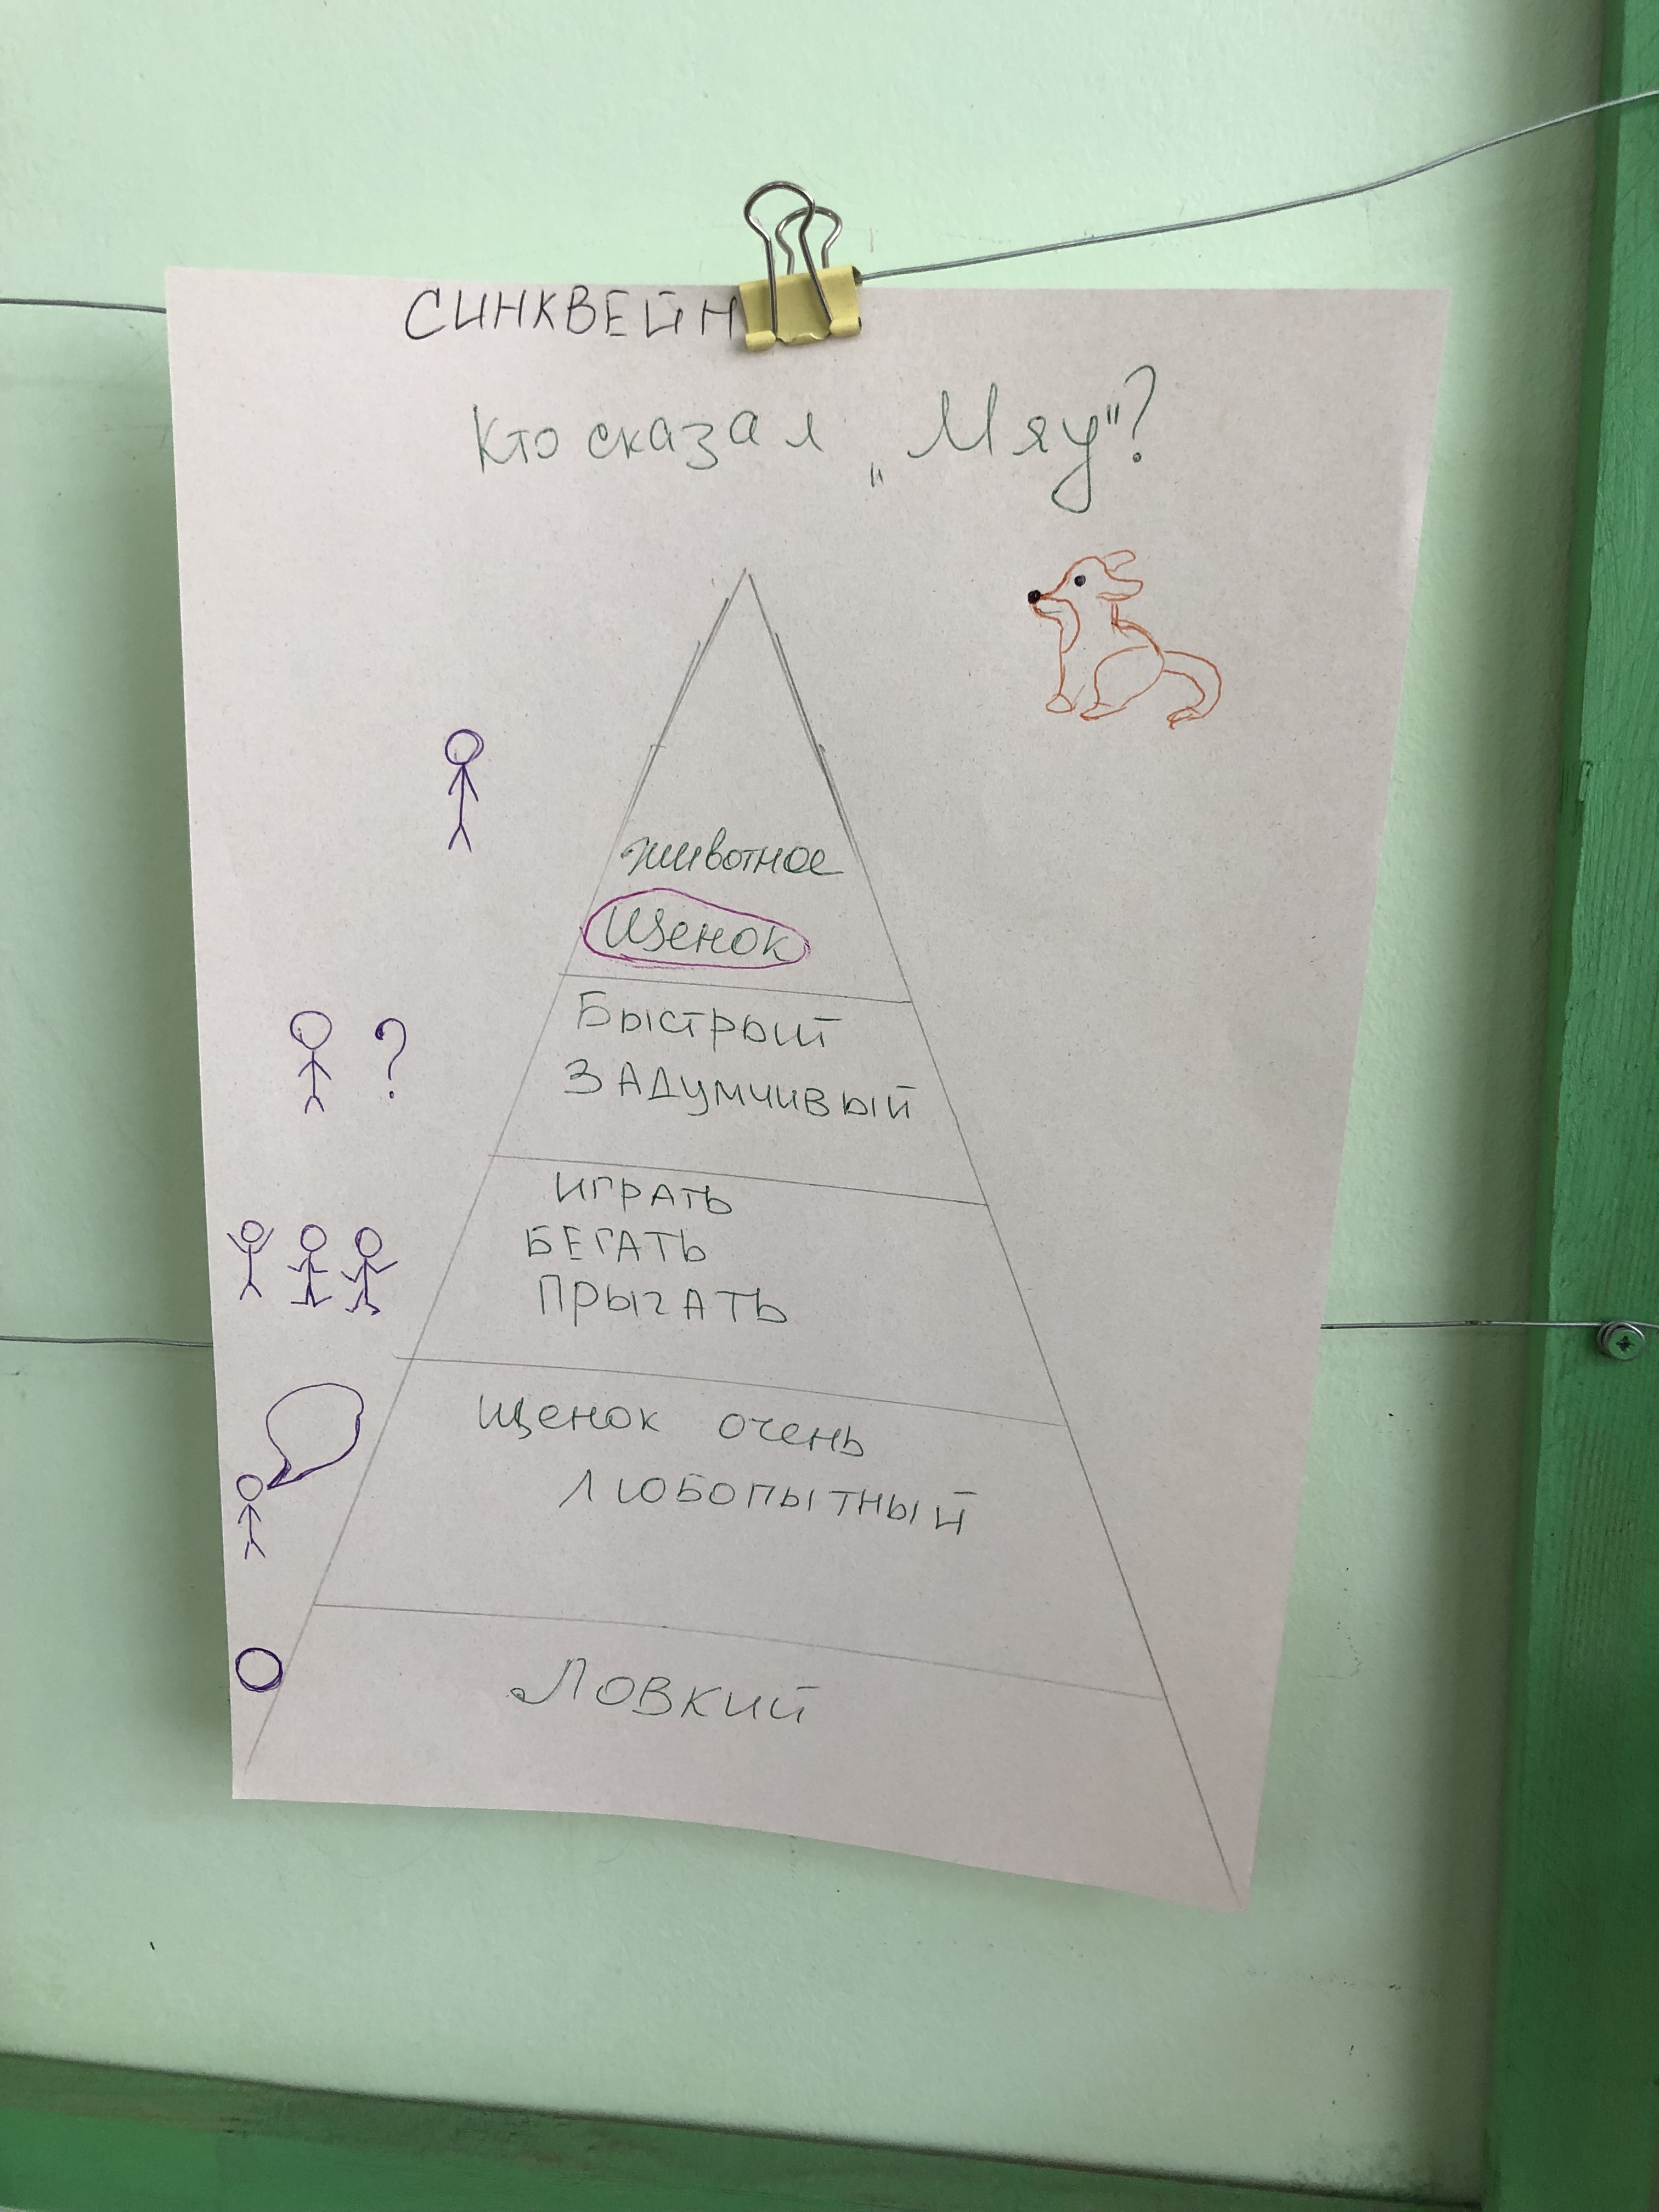 СИНКВЕЙН
Кто сказал „Мяу"?
животное
Щенок
Быстрый
ЗАДУМЧИВЫЙ
ИГРАТЬ
БЕГАТЬ
ПРЫГАТЬ
Щенок очень
ЛЮБОПЫТНЫЙ
Ловкий